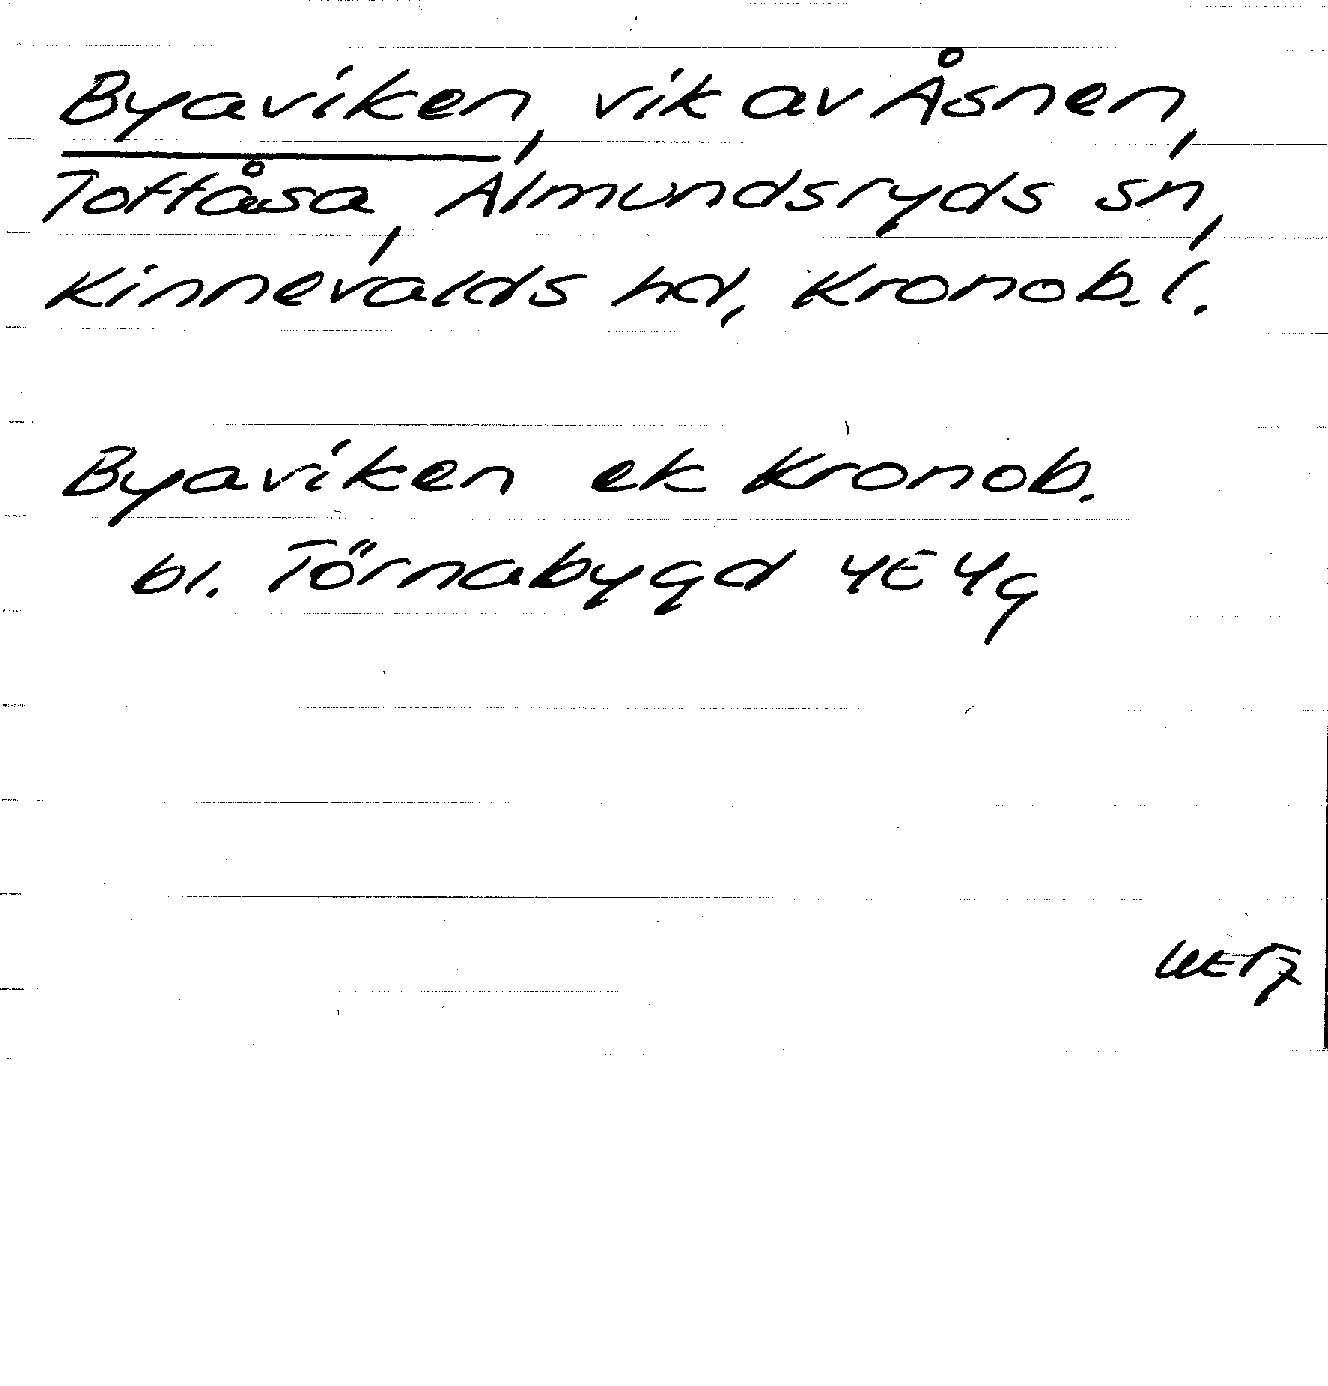 Byaviken, vik av Åsnen,
Toftåsa, Almundsryds sn,
Kinnevalds hd, Kronob. l.
Byaviken ek Kronob.
bl. Törnabygd 4E4g